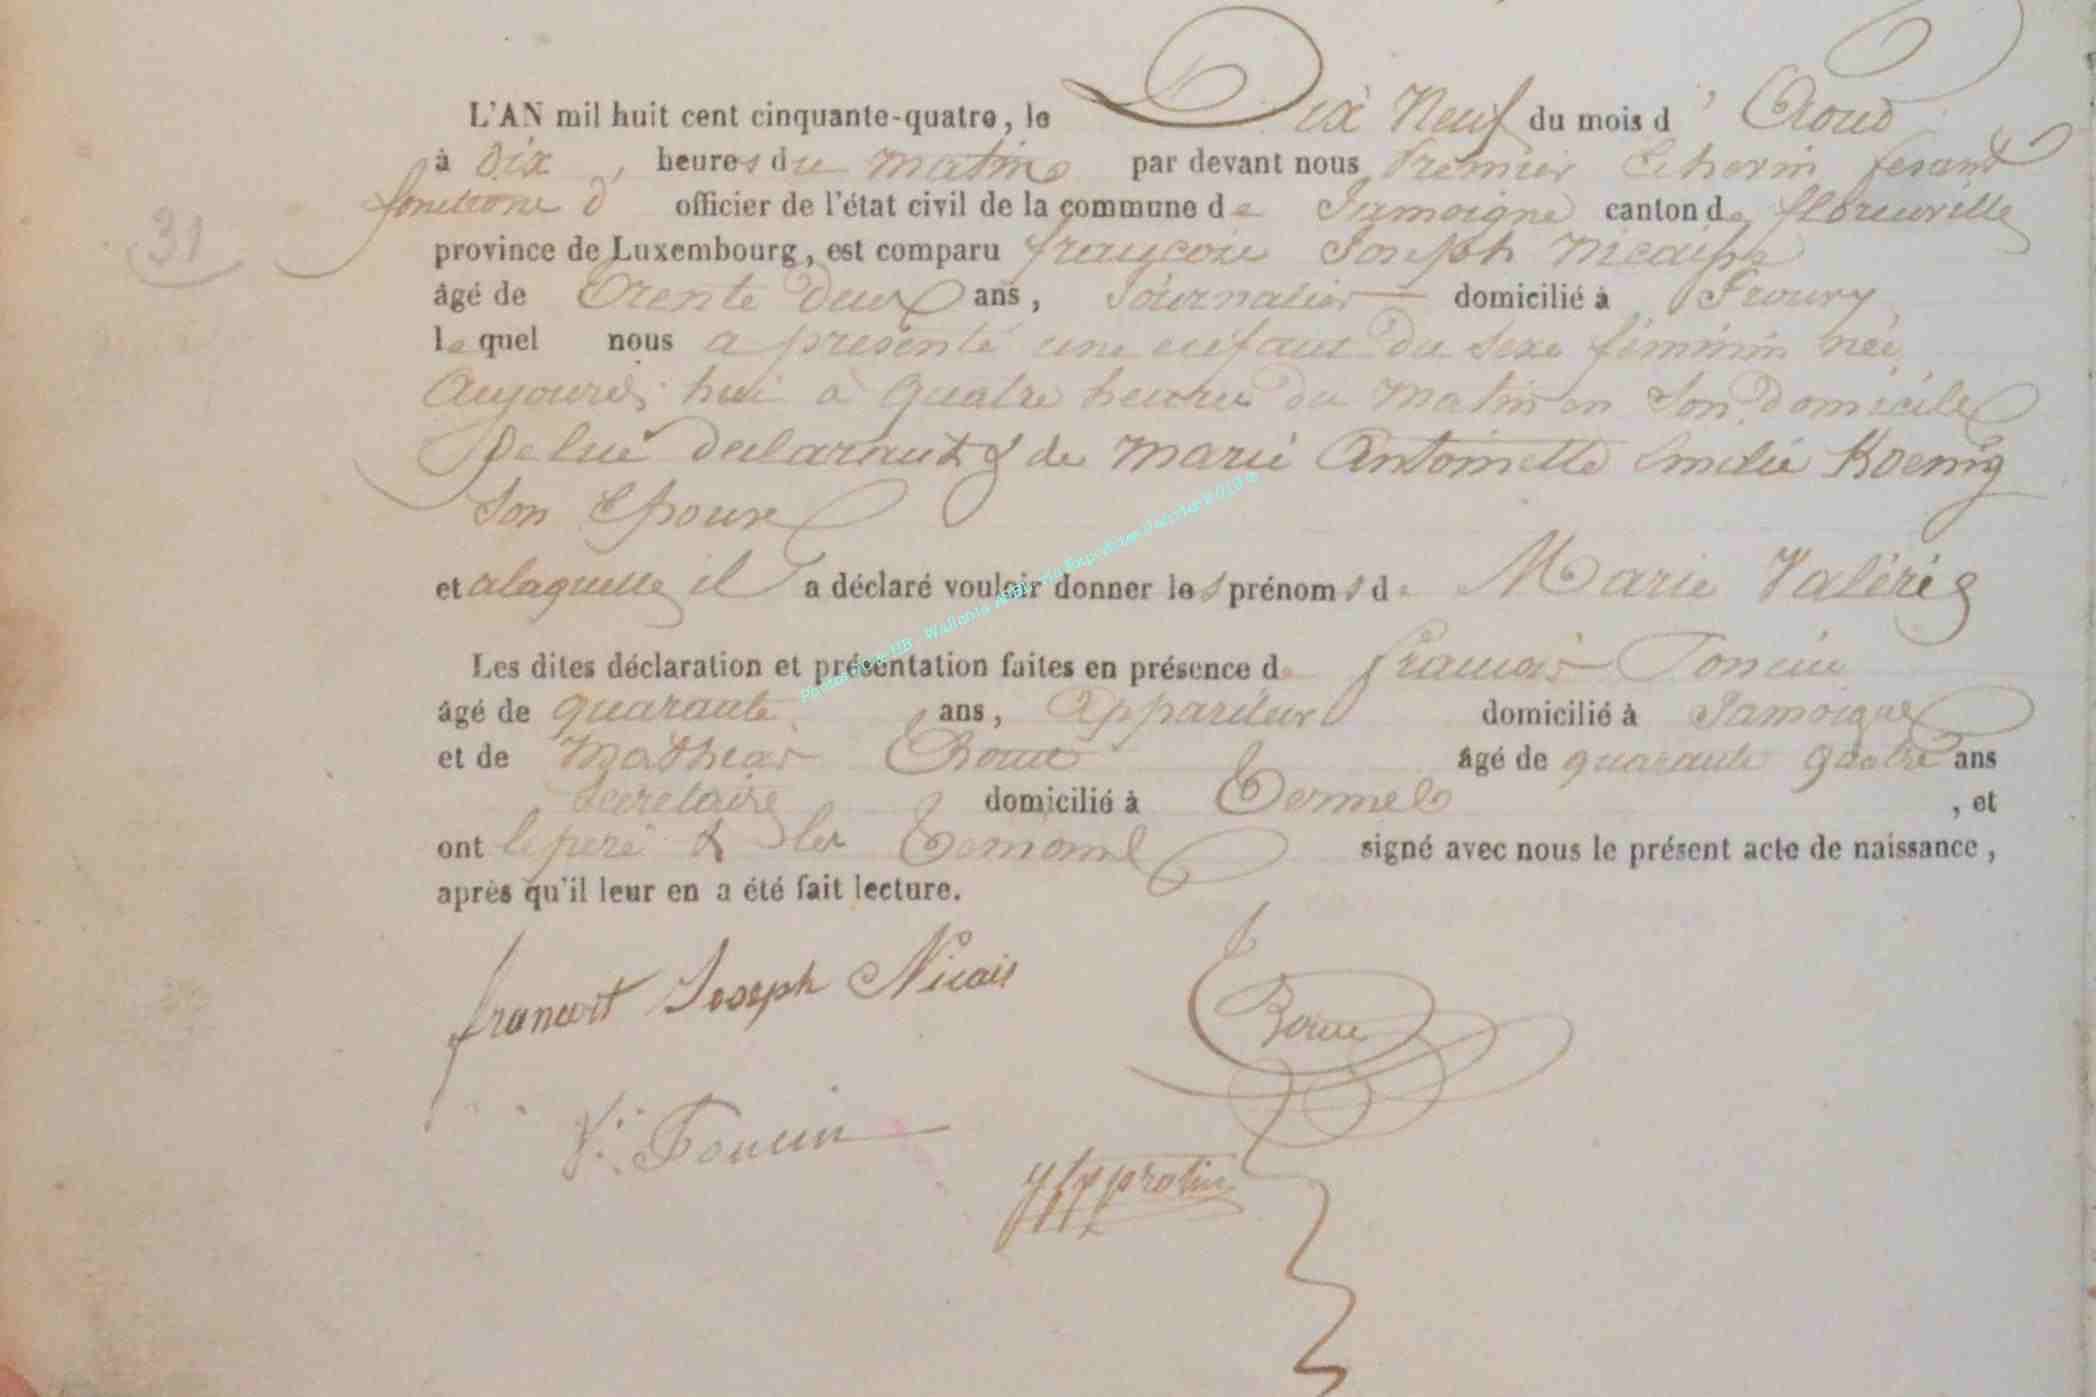 L'AN mil huit cent cinquante-quatre, le Dix Neuf du mois d' Aoud
à Dix heures du matin par devant nous Premier Echevin fesant
fonctions d officier de l'état civil de la commune de Jamoigne canton de florenville
31
province de Luxembourg, est comparu françois Joseph Nicaise
âgé de Trente Deux ans, Journalier domicilié à Prouvy
le quel nous a présenté une enfant du sexe féminin née
Aujourd'hui à quatre heures du matin en son domicile
De lui declarant & de Marie Antoinette Emelie Koenig
Son Epouse
et a laquelle il a déclaré vouloir donner les prénoms de Marie Valérie
Les dites déclaration et présentation faites en présence de françois Poncin
âgé de quarante ans, Appariteur domicilié à Jamoigne
et de Mathias âgé de quarante quatre ans
Secretaire domicilié à Termes, et
ont le pere & les Temoins signé avec nous le présent acte de naissance,
après qu'il leur en a été fait lecture.
francoit Joseph Nicais
Poncin